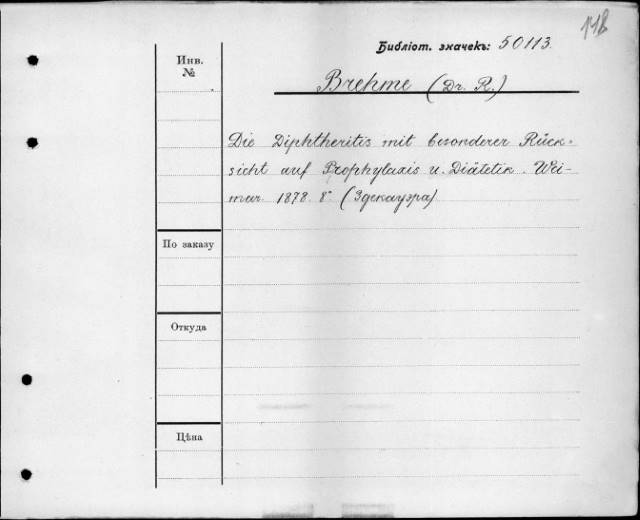 118
Библіот. значекъ: 50113.
Инв.
№
Brehme (Dr. R.)
Die Diphtheritis mit besonderer Rück-
sicht auf Prophylaxis u. Diätetik. Wei-
mar. 1878. 8° (Здекауэра)
По заказу
Откуда
Цѣна